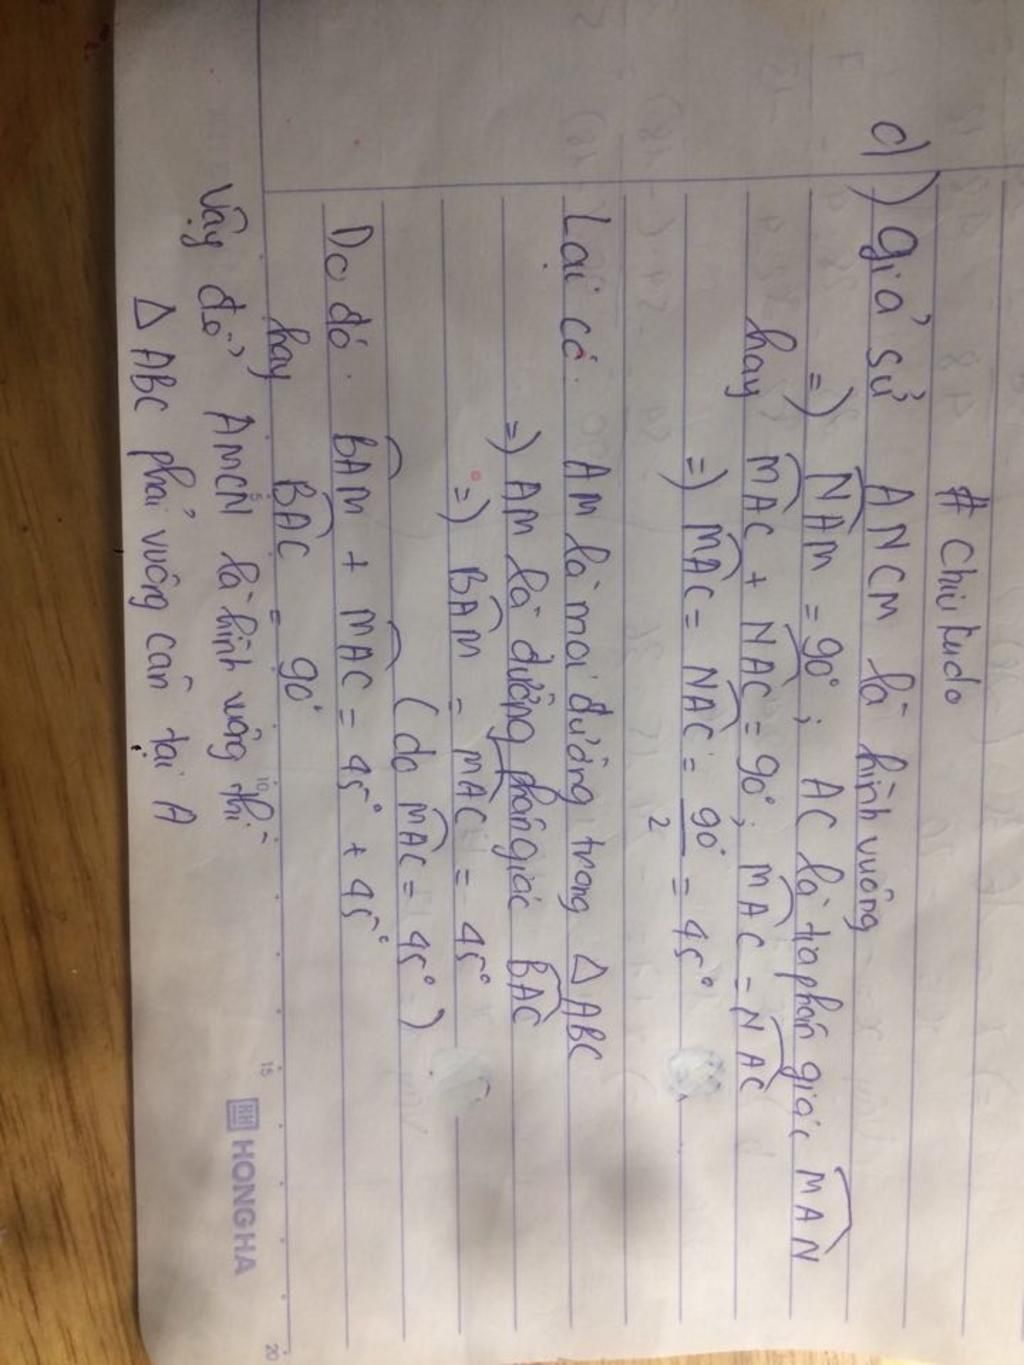 # Chiu kudo
c) Giả sử ANCM là hình vuông
=) NAM = 90°; AC là tia phân giác MAN
hay MAC + NAC = 90°; MAC = NAC
=) MAC = NAC = 90°/2 = 45°
Lại có. AM là một đường trong Δ ABC
=) AM là đường phân giác BAC
=) BAM = MAC = 45°
(do MAC = 45°)
Do đó. BAM + MAC = 45° + 45°
hay BAC = 90°
Vậy để AMCN là hình vuông thì
Δ ABC phải vuông cân tại A
5 10 15 20
HONG HA